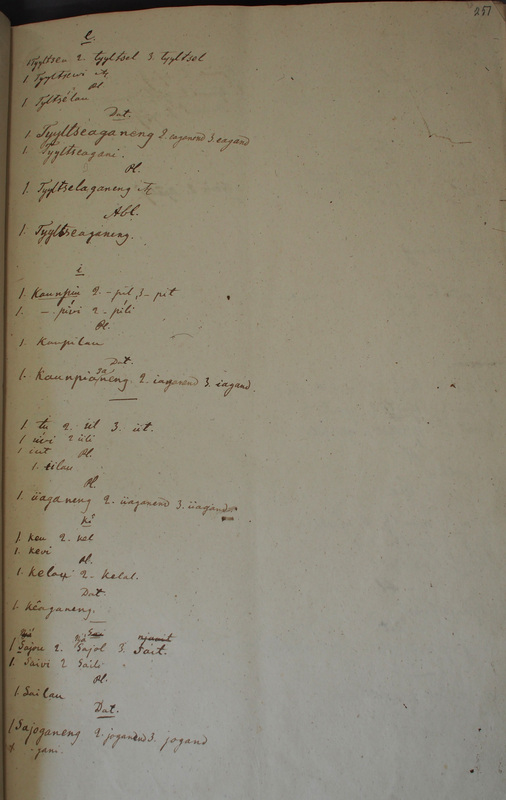 251
e.
Tyyltsen 2. tyyltsel 3. tyyltsel
1 Tyyltsewi
Pl
1 Tyltsélau
Dat.
1. Tyyltseaganeng 2 eaganend 3. eagand
1. Tyyltseagani.
Pl.
1. Tyyltselaganeng
Abl.
1. Tyyltseaganeng.
i
1. Kaunpin 2. - pil 3 - pit
1. - . pivi 2 - pili
Pl.
1. Kaupilau
Dat.
1. Kaunpianeng. 2. iaganend 3. iagand.
1 2. ül 3. üt.
1 üvi 2 üli
1 Pl.
1. ülau
Pl.
1. üaganeng 2. üaganend 3. üagand
1. ken 2. kel
1. kevi
Pl.
1. Kelau 2 - Kelal.
Dat.
1. Kêaganeng.
1 Sajou 2. Sajol 3. Sait.
1. Saivi 2 Saili
Pl.
1 Sailau
Dat.
1 Sajoganeng 2. joganend 3. jogand
- jani.